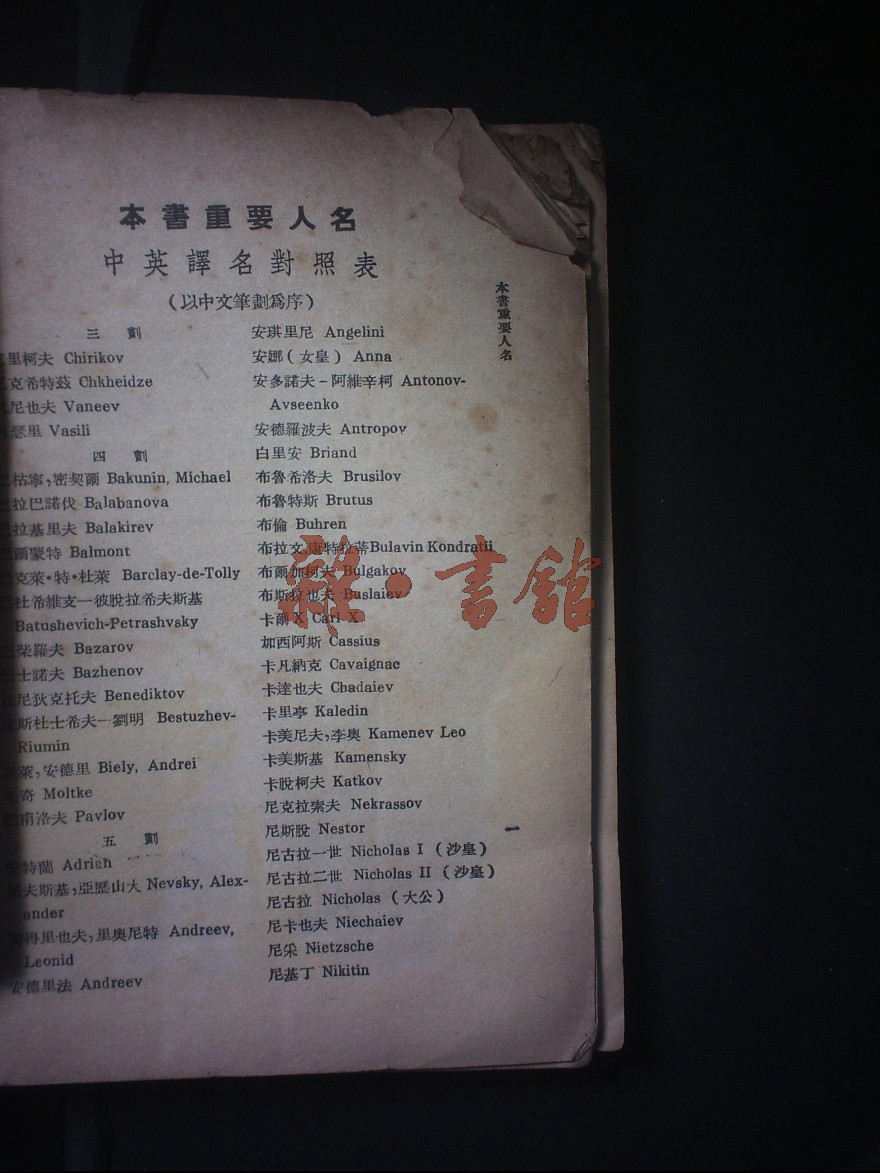 本書重要人名
中英譯名對照表
(以中文筆劃爲序)
三 劃
里柯夫 Chirikov
克希特茲 Chkheidze
尼也夫 Vaneev
瑟里 Vasili
四 劃
巴枯寧,密契爾 Bakunin, Michael
巴拉巴諾伐 Balabanova
巴拉基里夫 Balakirev
巴爾蒙特 Balmont
巴克萊·特·杜萊 Barclay-de-Tolly
巴杜希維支—彼脫拉希夫斯基
Batushevich-Petrashvsky
巴柴羅夫 Bazarov
巴士諾夫 Bazhenov
尼狄克托夫 Benediktov
斯杜士希夫—劉明 Bestuzhev-
Riumin
萊,安德里 Biely, Andrei
奇 Moltke
甫洛夫 Pavlov
五 劃
特蘭 Adrian
尼夫斯基,亞歷山大 Nevsky, Alex-
ander
得里也夫,里奧尼特 Andreev,
Leonid
安德里法 Andreev
安琪里尼 Angelini
安娜(女皇) Anna
安多諾夫－阿維辛柯 Antonov-
Avseenko
安德羅波夫 Antropov
白里安 Briand
布魯希洛夫 Brusilov
布魯特斯 Brutus
布倫 Buhren
布拉文,康特拉蒂 Bulavin Kondratii
布爾加柯夫 Bulgakov
布斯拉也夫 Buslaiev
卡爾X Carl X
加西阿斯 Cassius
卡凡納克 Cavaignac
卡達也夫 Chadaiev
卡里亭 Kaledin
卡美尼夫,李奧 Kamenev Leo
卡美斯基 Kamensky
卡脫柯夫 Katkov
尼克拉索夫 Nekrassov
尼斯脫 Nestor
尼古拉一世 Nicholas I (沙皇)
尼古拉二世 Nicholas II (沙皇)
尼古拉 Nicholas (大公)
尼卡也夫 Niechaiev
尼采 Nietzsche
尼基丁 Nikitin
本書重要人名
一
雜·書館